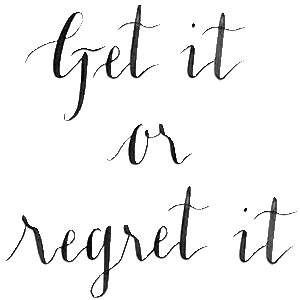 Get it
or
regret it